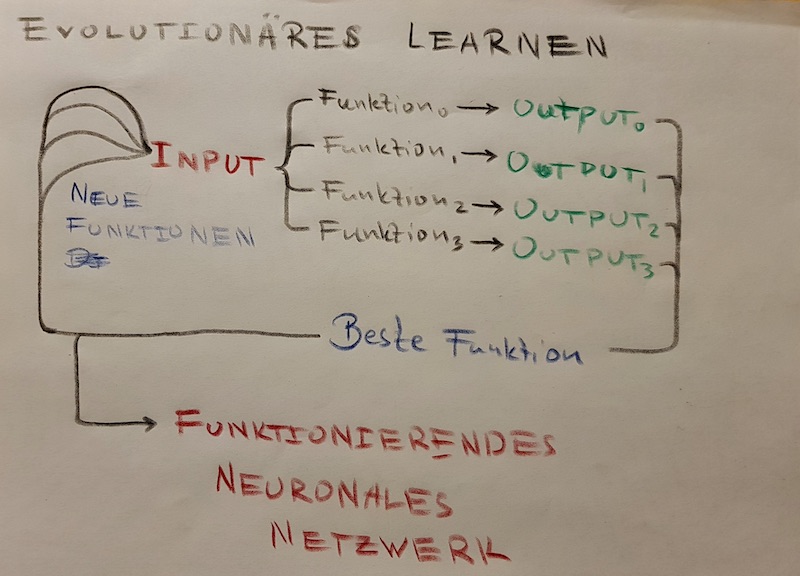 EVOLUTIONÄRES LEARNEN
Funktion₀ → OUTPUT₀
Funktion₁ → OUTPUT₁
INPUT
Funktion₂ → OUTPUT₂
Funktion₃ → OUTPUT₃
NEUE
FUNKTIONEN
Beste Funktion
FUNKTIONIERENDES
NEURONALES
NETZWERK